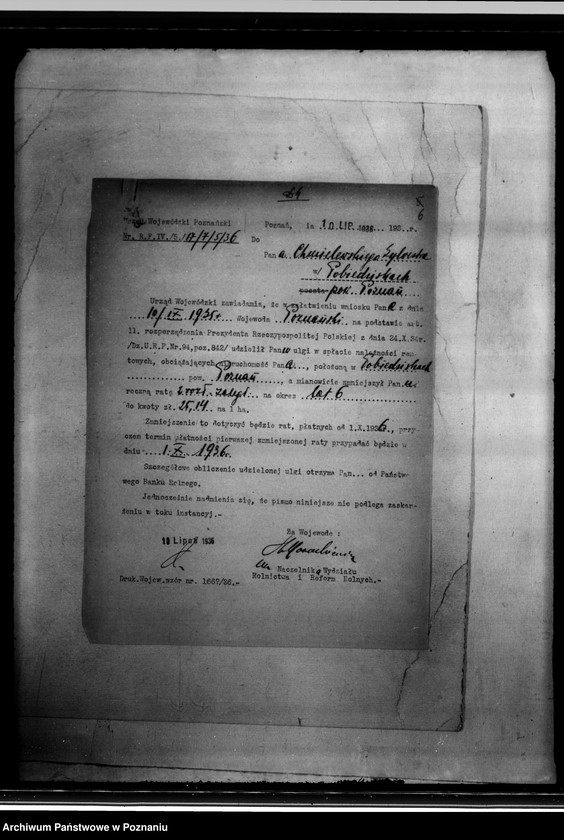 24
5
6
Urząd Wojewódzki Poznański
Nr. R.P.IV./R./17/7/5/36
Poznań, dnia 10 LIP. 1936 193...r.
Do
Pana Chmielewskiego Sylwestra
w/ Pobiedziskach
poczta pow. Poznań
Urząd Wojewódzki zawiadamia, że w załatwieniu wniosku Pana z dnia
10/IX. 1935 r. Wojewoda Poznański na podstawie art.
11. rozporządzenia Prezydenta Rzeczypospolitej Polskiej z dnia 24.X.34r.
/Dz.U.R.P.Nr.94,poz.842/ udzielił Panu ulgi w spłacie należności ren-
towych, obciążających nieruchomość Pana..., położoną w Pobiedziskach
............... pow. Poznań........, a mianowicie zmniejszył Panu
roczną ratę z rozł. zaległ... na okres lat 6
do kwoty zł. 25,14 na 1 ha.
Zmniejszenie to dotyczyć będzie rat, płatnych od 1.X.1936., przy-
czem termin płatności pierwszej zmniejszonej raty przypadać będzie w
dniu 1.X. 1936r.
Szczegółowe obliczenie udzielonej ulgi otrzyma Pan... od Państwo-
wego Banku Rolnego.
Jednocześnie nadmienia się, że pismo niniejsze nie podlega zaskar-
żeniu w toku instancyj.-
Za Wojewodę :
10 Lipca 1936
Naczelnika Wydziału
Rolnictwa i Reform Rolnych.-
Druk.Wojew.wzór nr. 1667/36.-
Archiwum Państwowe w Poznaniu